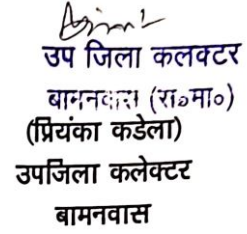 उप जिला कलक्टर
बामनवास (रा०मा०)
(प्रियंका कडेला)
उपजिला कलेक्टर
बामनवास